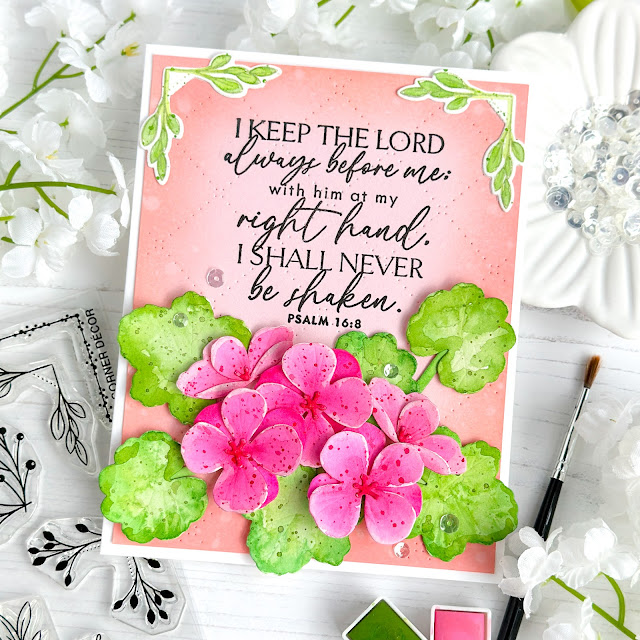 I KEEP THE LORD
always before me;
with him at my
right hand,
I SHALL NEVER
be shaken.
PSALM 16:8
CORNER DECOR